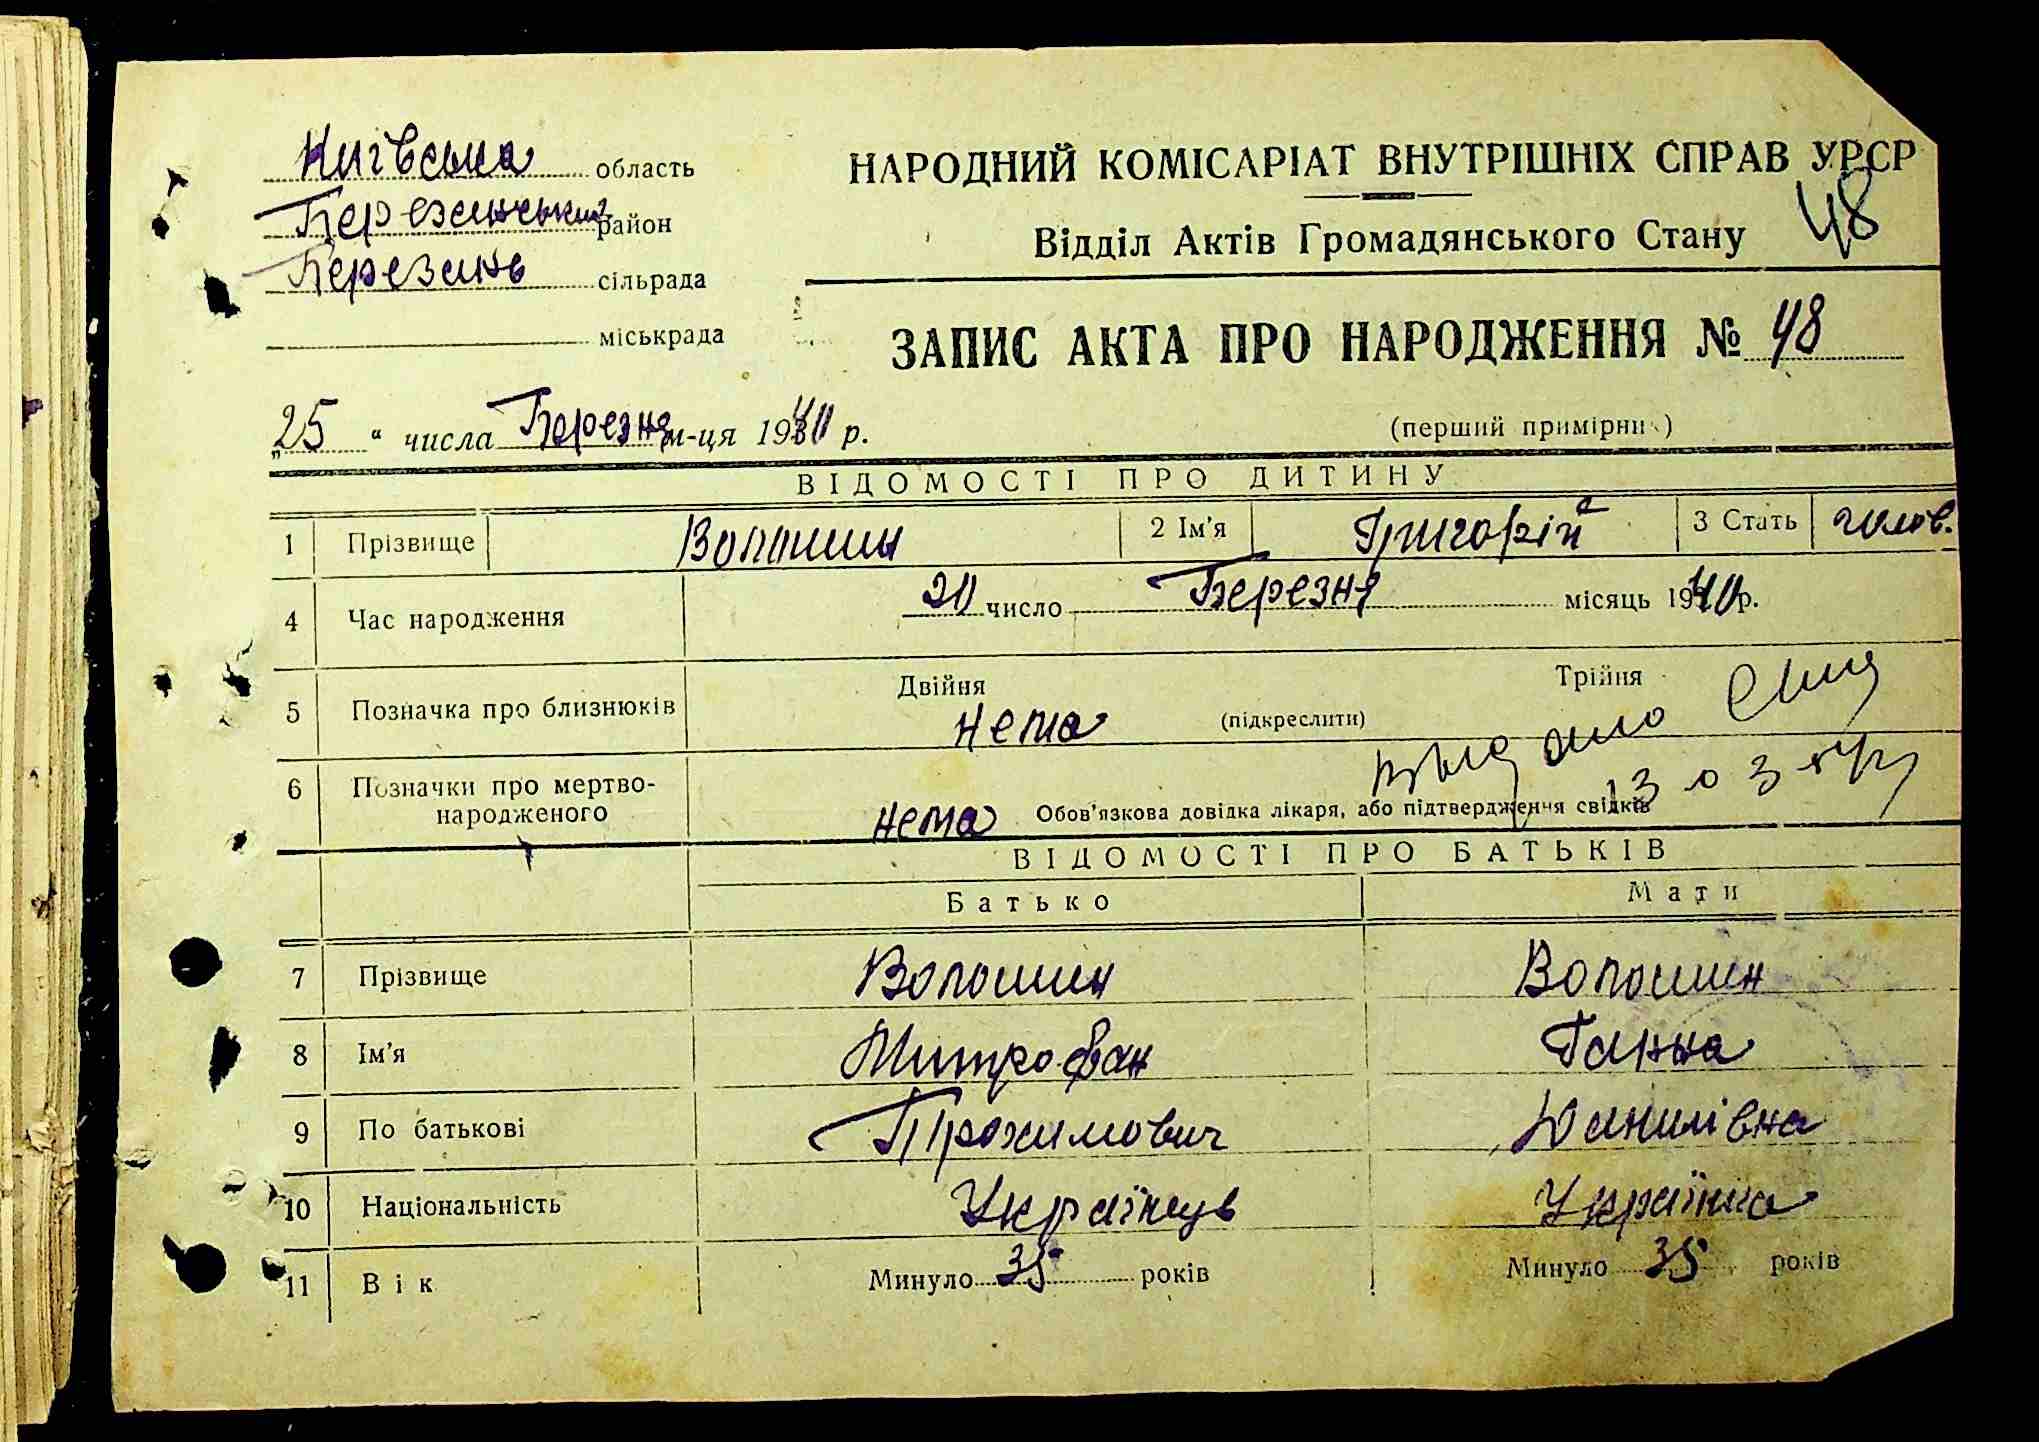 Київська область
НАРОДНИЙ КОМІСАРІАТ ВНУТРІШНІХ СПРАВ УРСР
Березанський район
Відділ Актів Громадянського Стану 48
Березань сільрада
міськрада
ЗАПИС АКТА ПРО НАРОДЖЕННЯ № 48
„25 “ числа Березня м-ця 1940 р.
(перший примірник)
ВІДОМОСТІ ПРО ДИТИНУ
1 Прізвище Волошин 2 Ім'я Григорій 3 Стать чолов.
4 Час народження 20 число Березня місяць 1940 р.
5 Позначка про близнюків Двійня нема (підкреслити) Трійня
6 Позначки про мертвонародженого нема Обов'язкова довідка лікаря, або підтвердження свідків
ВІДОМОСТІ ПРО БАТЬКІВ
Батько Мати
7 Прізвище Волошин Волошин
8 Ім'я Митрофан Ганна
9 По батькові Трохимович Данилівна
10 Національність Українець Українка
11 Вік Минуло 35 років Минуло 35 років